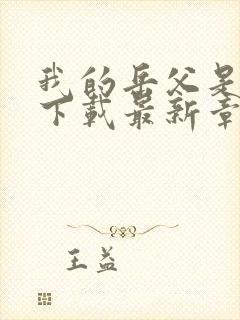 我的岳父是
下载最新章
王益